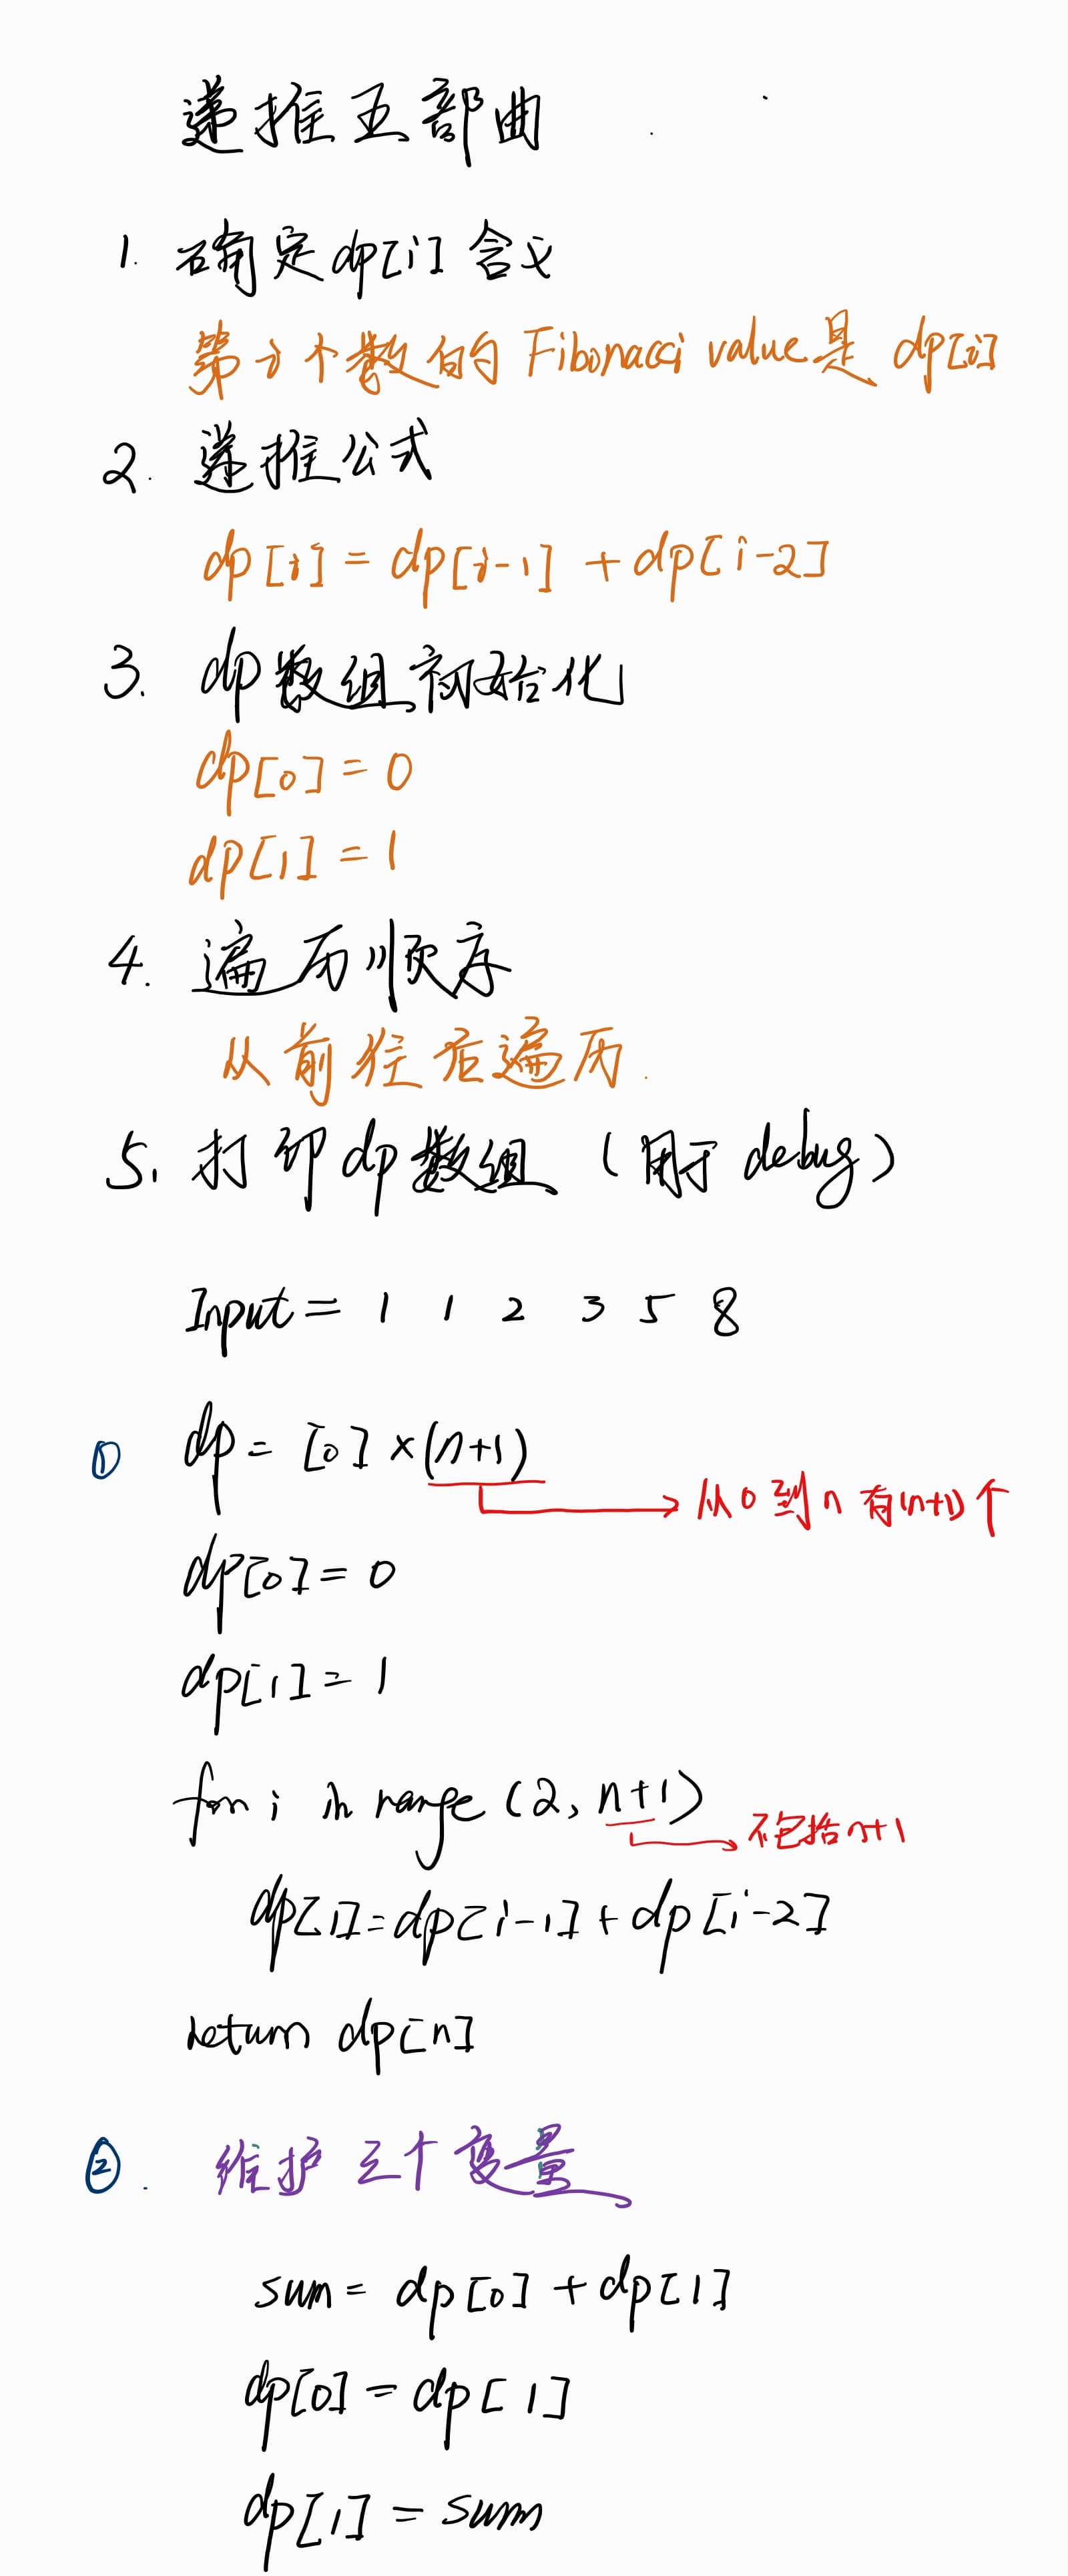 递推五部曲
1. 确定dp[i]含义
第i个数的Fibonacci value是dp[i]
2. 递推公式
dp[i] = dp[i-1] + dp[i-2]
3. dp数组初始化
dp[0] = 0
dp[1] = 1
4. 遍历顺序
从前往后遍历.
5. 打印dp数组 (用于debug)
Input = 1 1 2 3 5 8
① dp = [0] × (n+1)
从0到n有(n+1)个
dp[0] = 0
dp[1] = 1
for i in range (2, n+1)
不包括n+1
dp[i] = dp[i-1] + dp[i-2]
return dp[n]
②. 维护三个变量
sum = dp[0] + dp[1]
dp[0] = dp[1]
dp[1] = sum